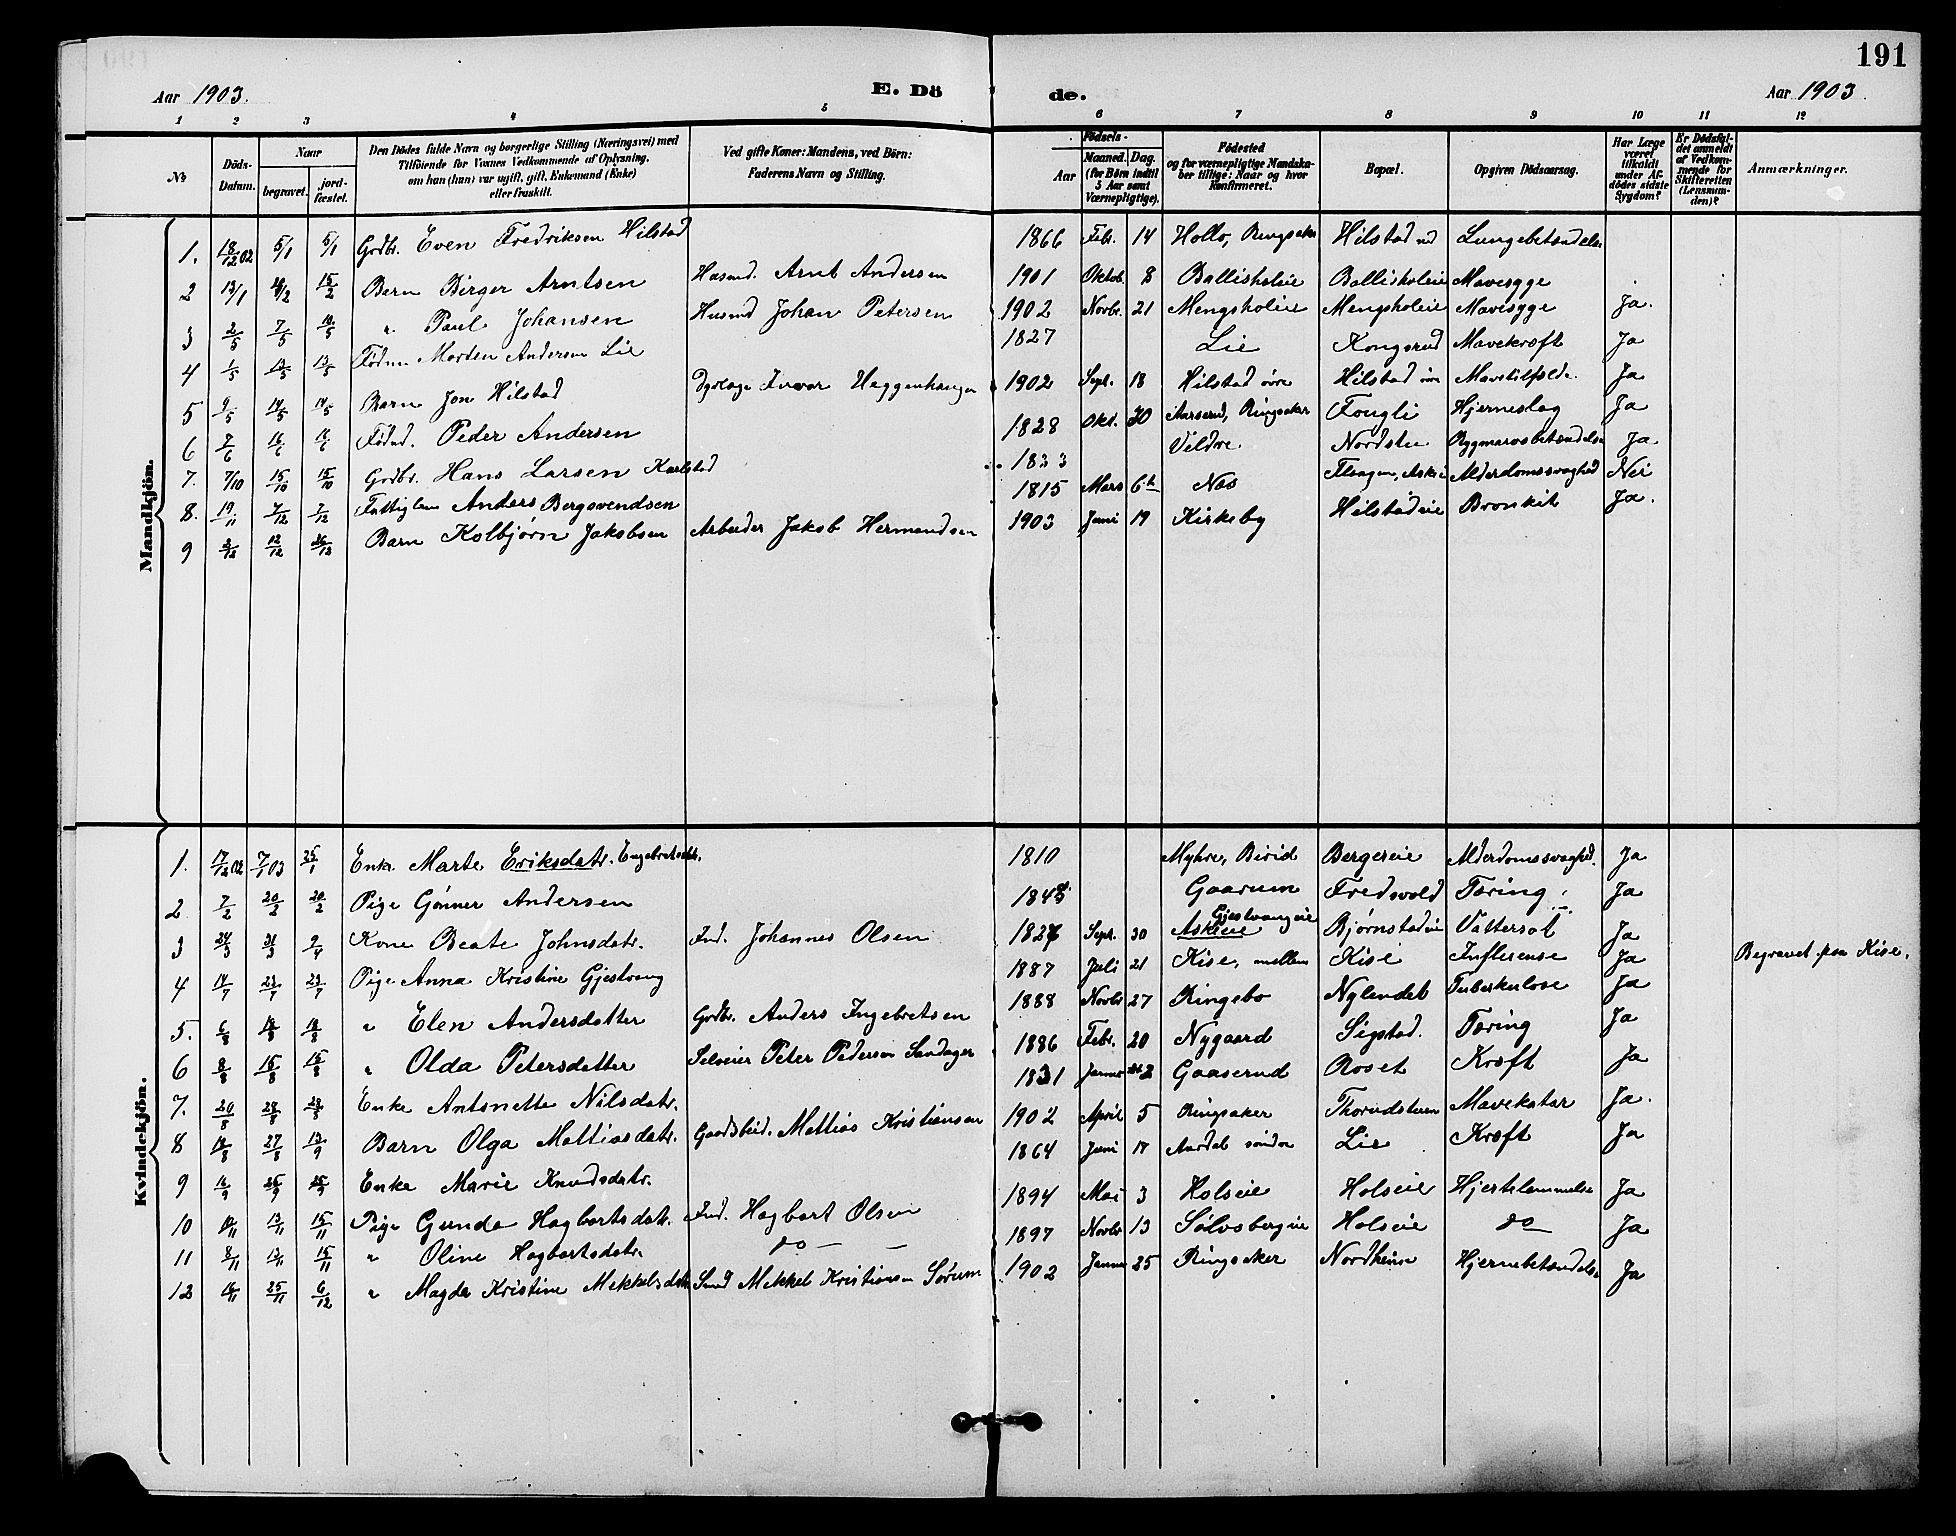 191
Aar 1903.
E. Dö
de.
Aar 1903.
1 2 3 4 5 6 7 8 9 10 11 12
No
Döds-Datum.
Naar
begravet.
jord-fæstet.
Den Dödes fulde Navn og borgerlige Stilling (Næringsvei) med
Tilföiende for Voxnes Vedkommende af Oplysning,
om han (hun) var ugift, gift, Enkemand (Enke)
eller fraskilt.
Ved gifte Koner: Mandens, ved Börn:
Faderens Navn og Stilling.
Födsels-
Aar
Maaned. Dag.
(for Börn indtil
5 Aar samt
Værnepligtige).
Födested
og for værnepligtige Mandska-
ber tillige: Naar og hvor
konfirmeret.
Bopæl.
Opgiven Dödsaarsag.
Har Læge
været
tilkaldt
under Af-
dödes sidste
Sygdom?
Er Dödsfal-
det anmeldt
af Vedkom-
mende for
Skifteretten
(Lensman-
den)?
Anmærkninger.
Mandkjön.
1. 18/12 02 5/1 5/1 Grdbr. Even Fredriksen Hilstad 1866 Febr. 14 Hollo, Ringsaker Hilstad Lungebetændelse
2 13/1 15/2 Barn Birger Arntsen Husmd. Arnt Andersen 1901 Oktob. 8 Ballisholeie Ballisholeie Mavesyge
3 2/5 7/5 10/5 " Paul Johansen Husmd Johan Petersen 1902 Novbr. 21 Mengsholeie Mengsholeie Mavesyge Ja.
4 1/5 13/5 13/5 Födrm Morten Andersen Lie 1827 Lie Kongsrud Mavekræft Ja
5 9/5 14/5 14/5 Barn Jon Hilstad Ivar Heggenhaugen 1902 Sept. 18 Hilstad övre Hilstad Ja
6 7/6 Födrd. Peder Andersen 1828 Okt. 30 Aarserud, Ringsaker Fougli Hjerneslag Ja
7. 7/10 15/10 15/10 Grdbr. Hans Larsen Karlstad 1833 Vildre Nordstu Rygmarvsbetændelse Ja.
8. 19/11 7/12 7/12 Fattiglem Anders Bergsvendsen 1815 Mars 6te Næs Alderdomssvaghed Nei
9 2/12 12/12 26/12 Barn Kolbjörn Jakobsen Arbeider Jakob Hermandsen 1903 Juni 19 Kirkeby Hilstadeie Bronkit Ja.
Kvindekjön.
1. 17/12 02 7/1 03 25/1 Enke Marte Eriksdatr. Engebretsdtr. 1810 Myhre, Birid Bergereie Alderdomssvaghed. Ja
2 7/2 20/2 20/2 Pige Gönner Andersen 1845 Gaarum Fredsvold Tæring Ja
3 24/3 31/3 9/4 Kone Beate Johnsdatr. Ind. Johannes Olsen 1827 Sept. 30 Askeie Gjestvangeie Bjørnstadeie Vattersot Ja
4 14/7 23/7 23/7 Pige Anna Kristine Gjestvang 1887 Juli 21 Kise, mellem Kise Influense Ja Begravet paa Kise.
5. 6/8 18/8 18/8 " Elen Andersdatter Grdbr. Anders Ingebretsen 1888 Novbr 27 Ringebo Nylendet Tuberkulose Ja
6 8/8 15/8 15/8 " Olda Petersdatter Selveier Peter Pedersen Sandager 1886 Febr. 20 Nygaard Sigstad. Tæring Ja
7. 20/8 28/8 28/8 Enke Antonette Nilsdatr. 1831 Januar Gaaserud Roset Kræft Ja
8 18/8 27/8 13/9 Barn Olga Mattiasdatr. Gaardsbrd. Mattias Kristiansen 1902 April 5 Ringsaker Thorudstuen Mavekatar Ja.
9 16/9 25/9 25/9 Enke Marie Knudsdatr. 1864 Juni 17 Aardal söndre Lie Kræft Ja
10 10/11 13/11 15/11 Pige Gunda Hagbartsdatr. Ind. Hagbart Olsen 1894 Mai 3 Holseie Holseie Hjertelammelse Ja
11 8/11 13/11 15/11 " Oline Hagbartsdatr. do 1897 Novbr 13 Sølvsbergeie Holseie do Ja
12 18/11 25/11 6/12 " Magda Kristine Mekkelsdatr Smed Mekkel Kristiansen Sörum 1902 Januar 25 Ringsaker Nordheim Hjernebetændelse Ja